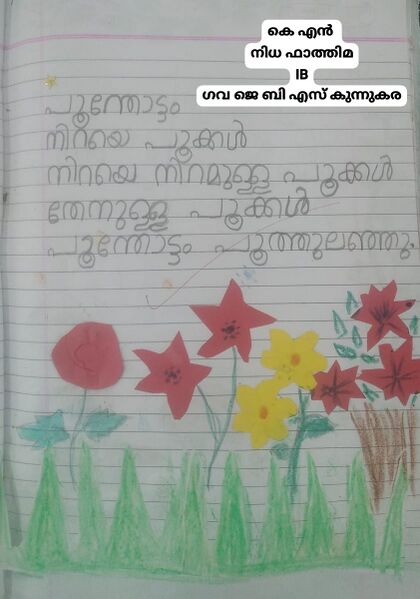 കെ എൻ
നിധ ഫാത്തിമ
IB
ഗവ ജെ ബി എസ് കുന്നുകര
പൂന്തോട്ടം
നിറയെ പൂക്കൾ
നിറയെ നിറമുള്ള പൂക്കൾ
തേനുള്ള പൂക്കൾ
പൂന്തോട്ടം പൂത്തുലഞ്ഞു.